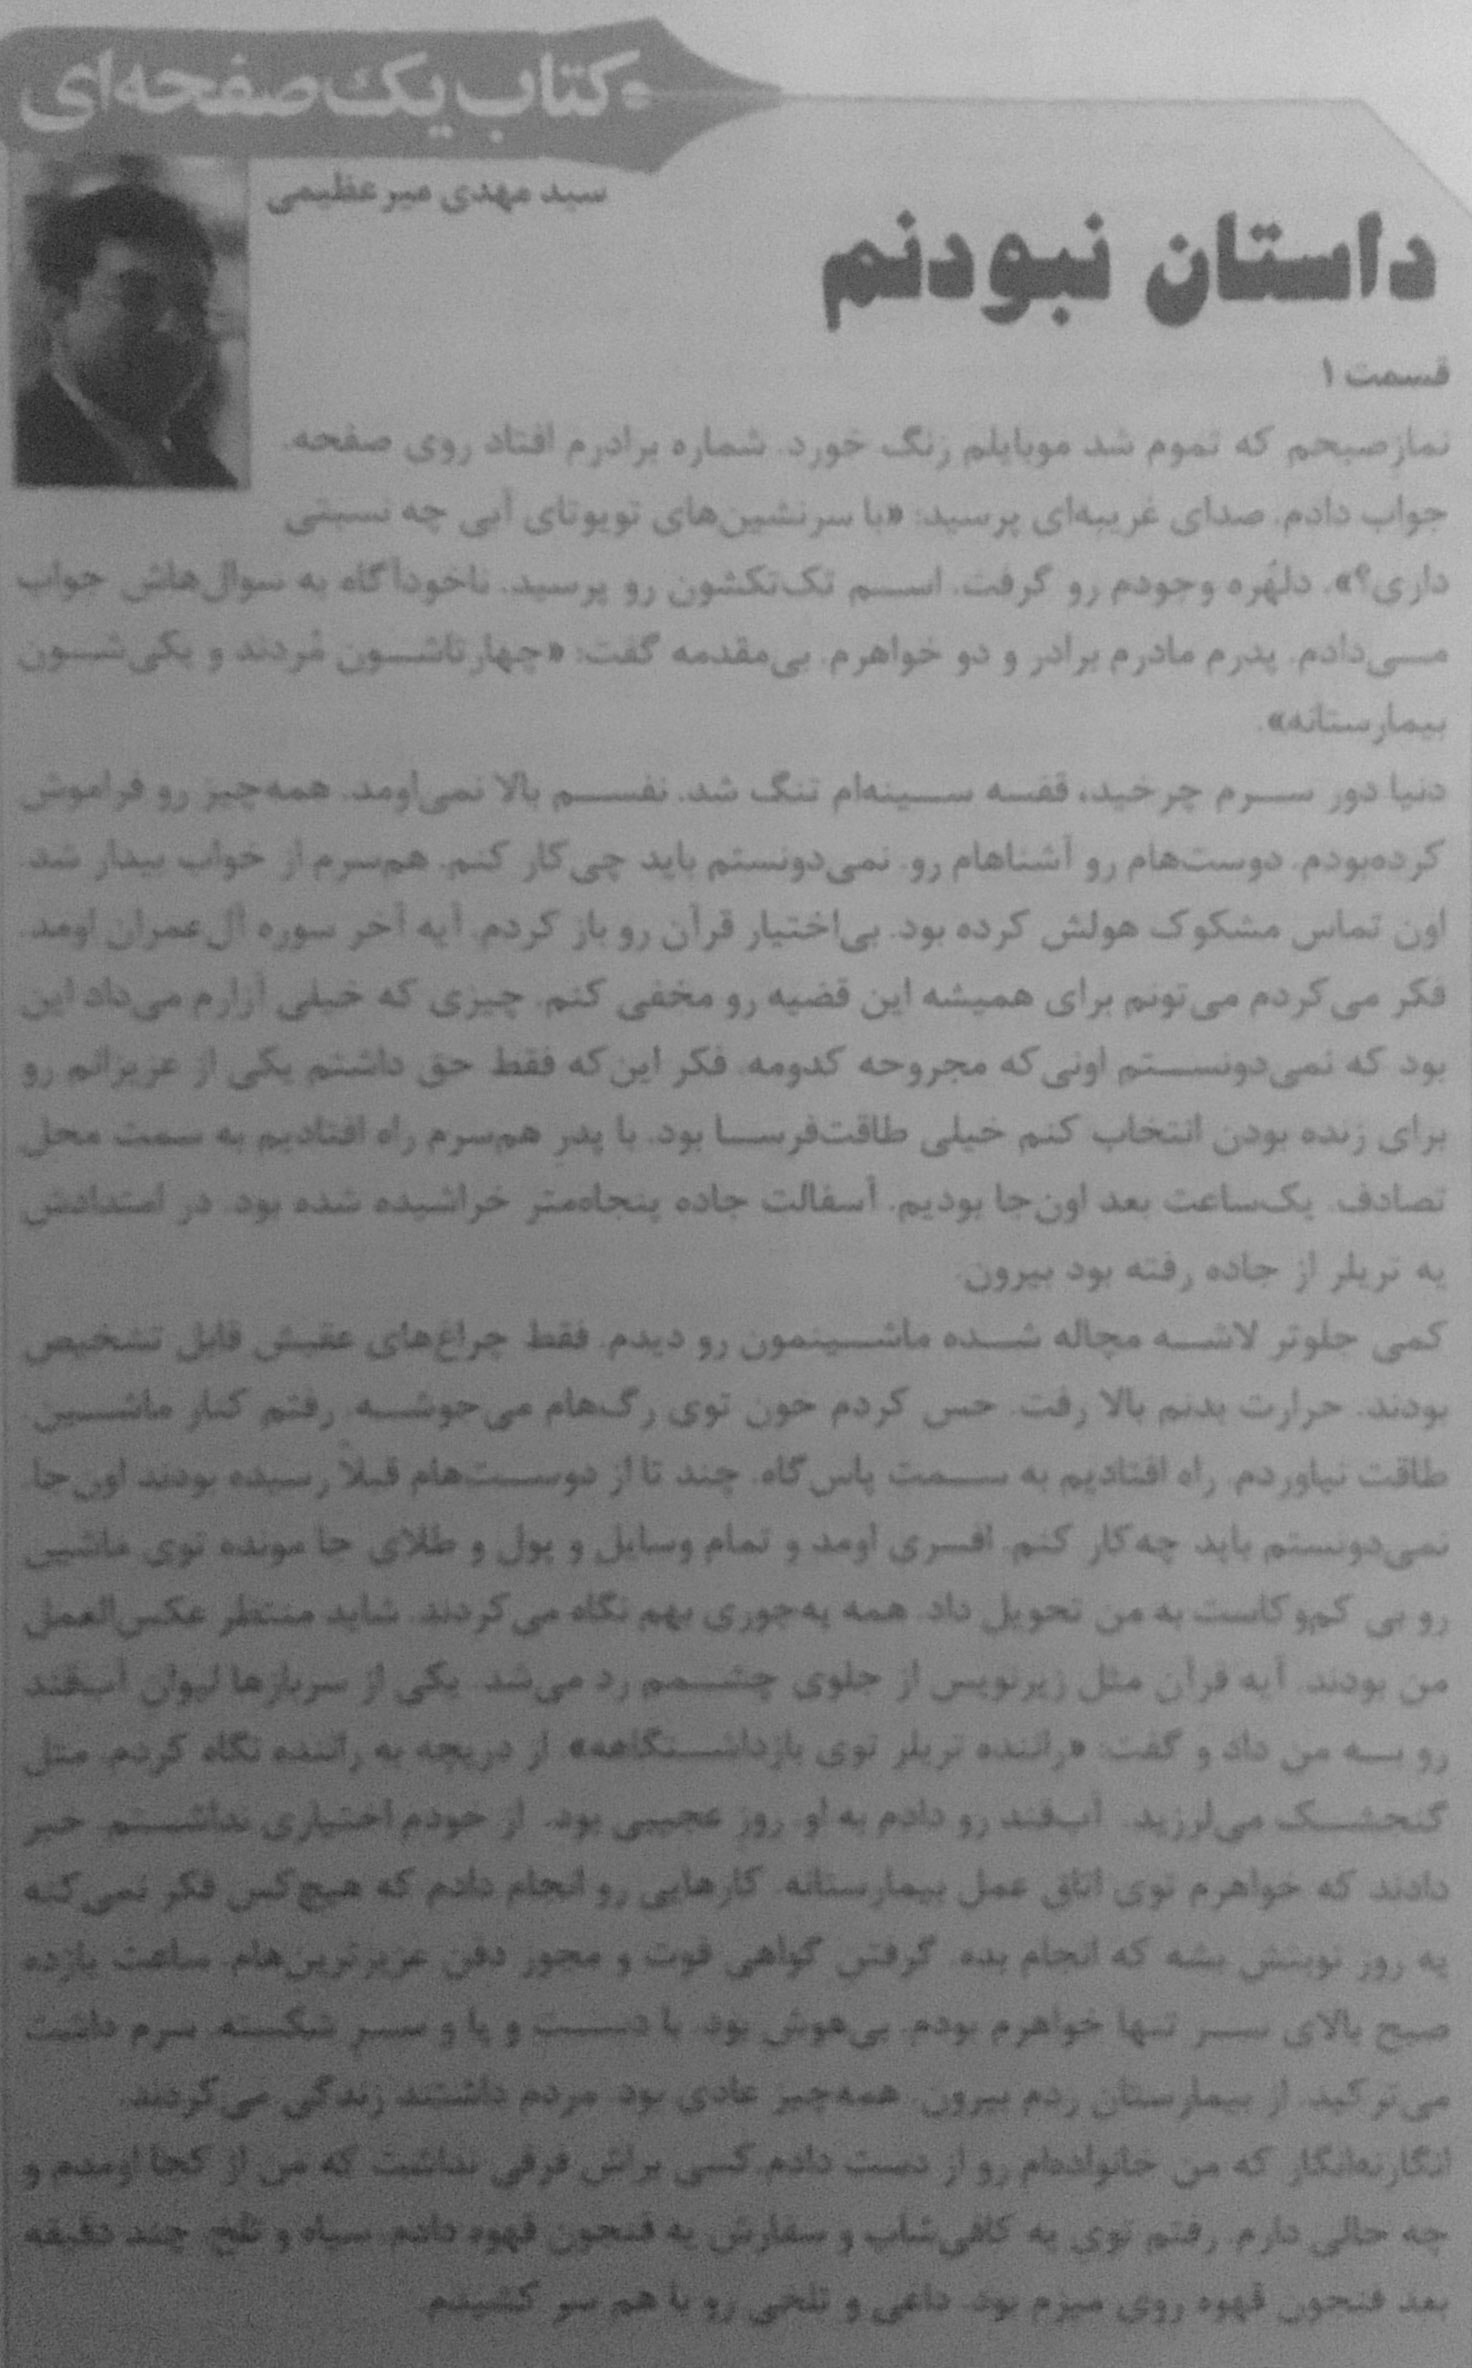 کتاب یک صفحه‌ای
سید مهدی میرعظیمی
داستان نبودنم
قسمت ۱
نمازصبحم که تموم شد موبایلم زنگ خورد. شماره برادرم افتاد روی صفحه.
جواب دادم. صدای غریبه‌ای پرسید: «با سرنشین‌های تویوتای آبی چه نسبتی
داری؟». دلهُره وجودم رو گرفت. اسم تک‌تکشون رو پرسید. ناخودآگاه به سوال‌هاش جواب
می‌دادم. پدرم مادرم برادر و دو خواهرم. بی‌مقدمه گفت: «چهارتاشون مُردند و یکی‌شون
بیمارستانه».
دنیا دور سرم چرخید، قفسه سینه‌ام تنگ شد. نفسم بالا نمی‌اومد. همه‌چیز رو فراموش
کرده‌بودم. دوست‌هام رو آشناهام رو. نمی‌دونستم باید چی‌کار کنم. هم‌سرم از خواب بیدار شد.
اون تماس مشکوک هولش کرده بود. بی‌اختیار قرآن رو باز کردم. آیه آخر سوره آل‌عمران اومد.
فکر می‌کردم می‌تونم برای همیشه این قضیه رو مخفی کنم. چیزی که خیلی آزارم می‌داد این
بود که نمی‌دونستم اونی‌که مجروحه کدومه. فکر این‌که فقط حق داشتم یکی از عزیزانم رو
برای زنده بودن انتخاب کنم خیلی طاقت‌فرسا بود. با پدرِ هم‌سرم راه افتادیم به سمت محل
تصادف. یک‌ساعت بعد اون‌جا بودیم. آسفالت جاده پنجاه‌متر خراشیده شده بود. در امتدادش
یه تریلر از جاده رفته بود بیرون.
کمی جلوتر لاشه مچاله شده ماشینمون رو دیدم. فقط چراغ‌های عقبش قابل تشخیص
بودند. حرارت بدنم بالا رفت. حس کردم خون توی رگ‌هام می‌جوشه. رفتم کنار ماشین.
طاقت نیاوردم. راه افتادیم به سمت پاس‌گاه. چند تا از دوست‌هام قبلاً رسیده بودند اون‌جا.
نمی‌دونستم باید چه‌کار کنم. افسری اومد و تمام وسایل و پول و طلای جا مونده توی ماشین
رو بی کم‌و‌کاست به من تحویل داد. همه یه‌جوری بهم نگاه می‌کردند. شاید منتظر عکس‌العمل
من بودند. آیه قرآن مثل زیرنویس از جلوی چشمم رد می‌شد. یکی از سربازها لیوان آب‌قند
رو به من داد و گفت: «راننده تریلر توی بازداشتگاهه» از دریچه به راننده نگاه کردم. مثل
گنجشک می‌لرزید. آب‌قند رو دادم به او. روز عجیبی بود. از خودم اختیاری نداشتم. خبر
دادند که خواهرم توی اتاق عمل بیمارستانه. کارهایی رو انجام دادم که هیچ‌کس فکر نمی‌کنه
یه روز نوبتش بشه که انجام بده. گرفتن گواهی فوت و مجوز دفن عزیزترین‌هام. ساعت یازده
صبح بالای سر تنها خواهرم بودم. بی‌هوش بود. با دست و پا و سر شکسته. سرم داشت
می‌ترکید. از بیمارستان زدم بیرون. همه‌چیز عادی بود. مردم داشتند زندگی می‌کردند.
انگارنه‌انگار که من خانواده‌ام رو از دست دادم. کسی براش فرقی نداشت که من از کجا اومدم و
چه حالی دارم. رفتم توی یه کافی‌شاپ و سفارش یه فنجون قهوه دادم. سیاه و تلخ. چند دقیقه
بعد فنجون قهوه روی میزم بود. داغی و تلخی رو با هم سر کشیدم.